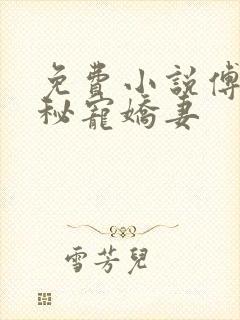 免費小說傅
秘寵嬌妻
雪芳兒